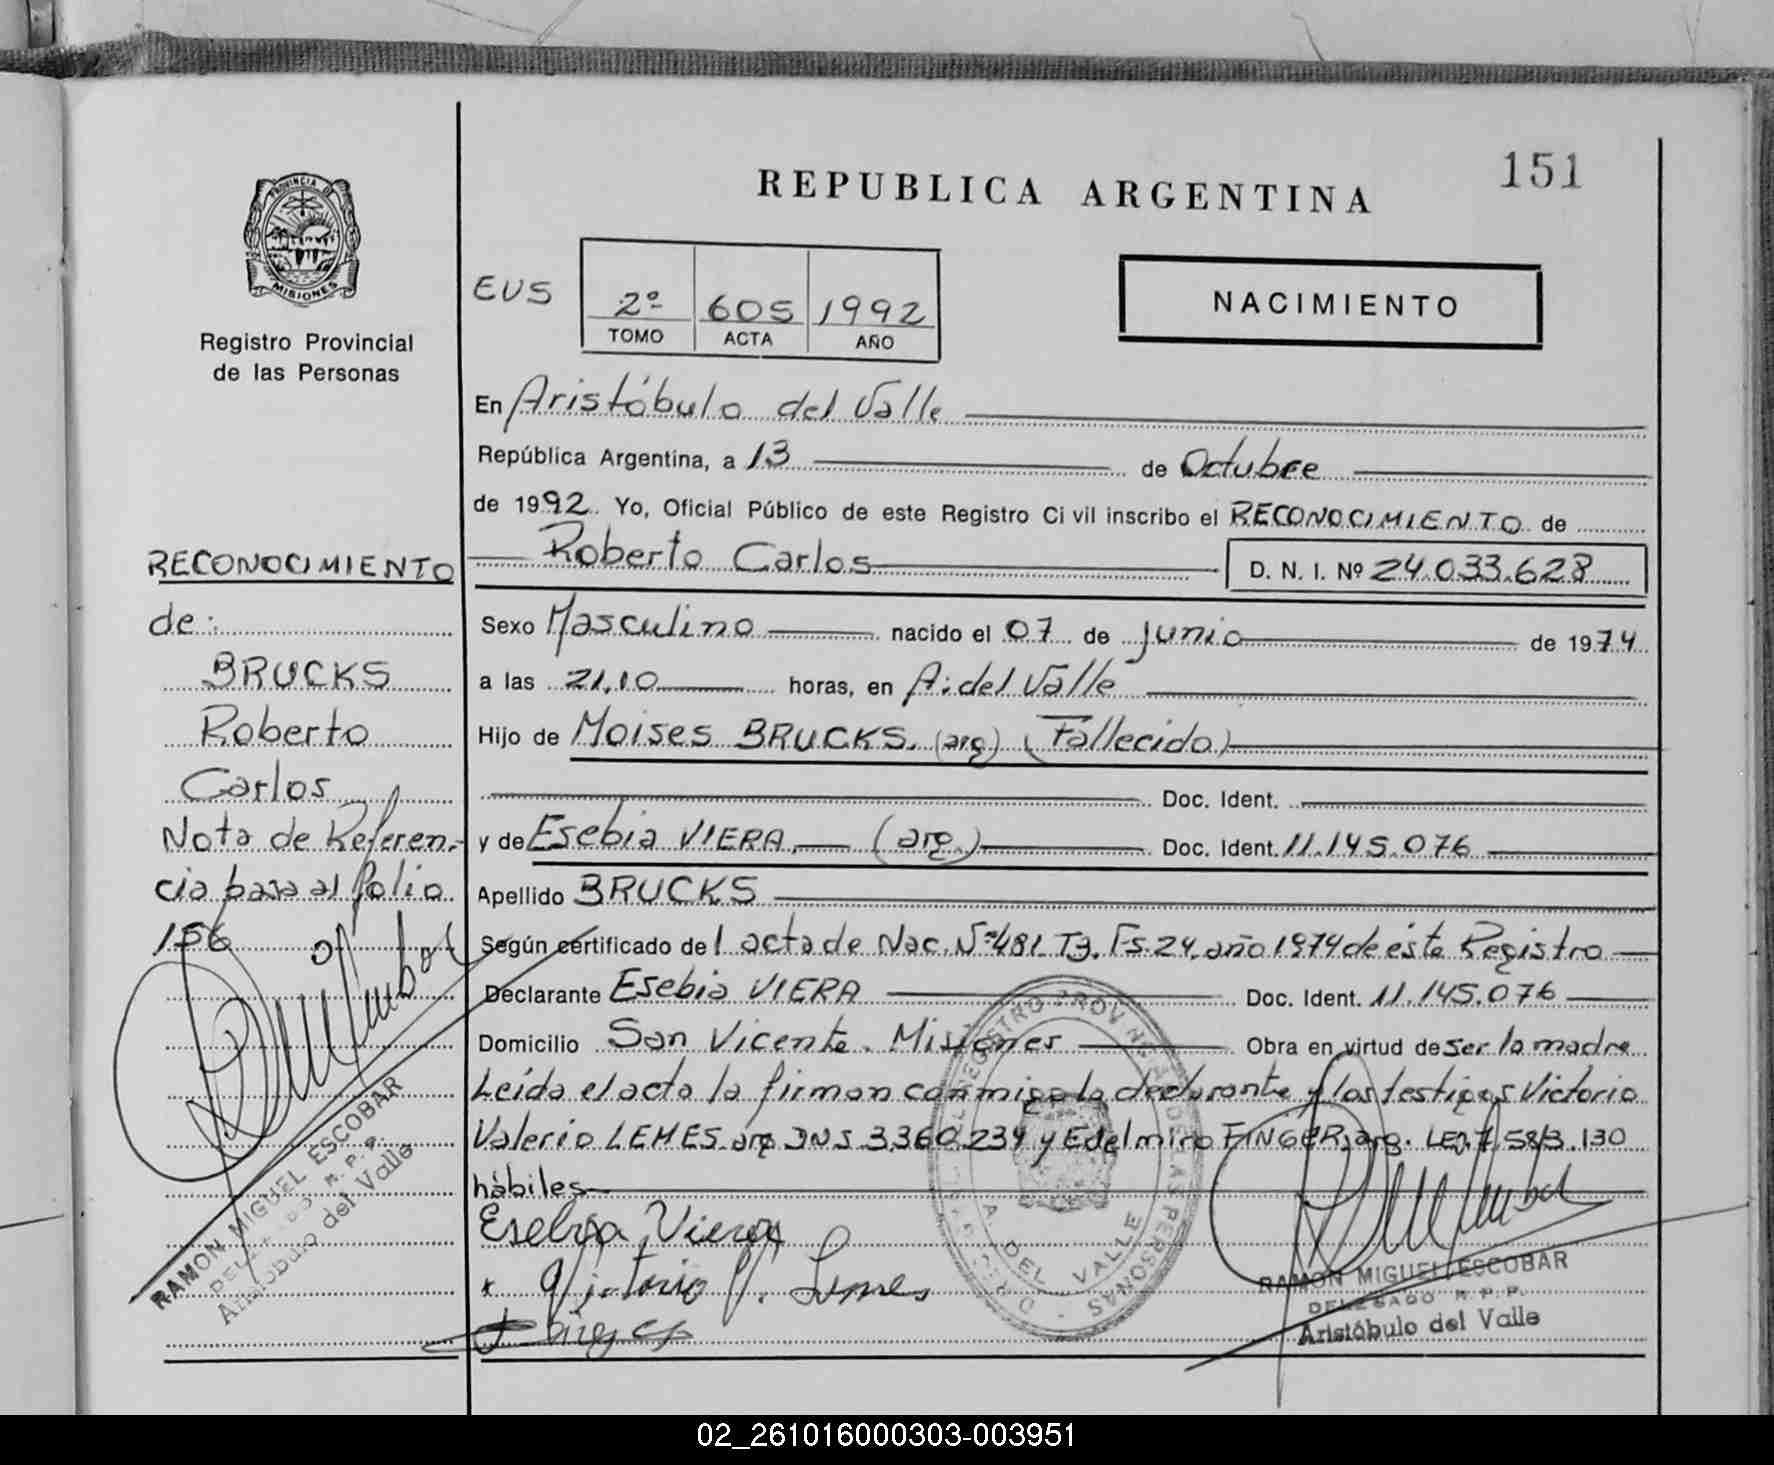 151
REPUBLICA ARGENTINA
PROVINCIA DE
MISIONES
Registro Provincial
de las Personas
EUS
2º 605 1992
TOMO ACTA AÑO
NACIMIENTO
En Aristóbulo del Valle
República Argentina, a 13 de Octubre
de 1992. Yo, Oficial Público de este Registro Ci vil inscribo el RECONOCIMIENTO de
Roberto Carlos D. N. I. Nº 24.033.628
Sexo Masculino nacido el 07 de junio de 1974
a las 21,10 horas, en A. del Valle
Hijo de Moises BRUCKS. (arg) (Fallecido)
Doc. Ident.
y de Esebia VIERA (arg.) Doc. Ident. 11.145.076
Apellido BRUCKS
Según certificado de l acta de Nac. Nº 481. T3. Fs. 24. año 1974 de éste Registro
Declarante Esebia VIERA Doc. Ident. 11.145.076
Domicilio San Vicente. Misiones Obra en virtud de ser la madre
Leída el acta la firman conmigo la declarante y los testigos Victorio
Valerio LEMES. arg. 3.360.234 y Edelmiro FINGER, arg. LE. 7.583.130
hábiles
Esebia Viera
x Victorio V. Lemes
RAMON MIGUEL ESCOBAR
DELEGADO R. P. P.
Aristóbulo del Valle
RECONOCIMIENTO
de:
BRUCKS
Roberto
Carlos
Nota de Referen-
cia pasa al folio
156
RAMON MIGUEL ESCOBAR
DELEGADO R. P. P.
Aristóbulo del Valle
REGISTRO PROVINCIAL DE LAS PERSONAS
A. DEL VALLE
02_261016000303-003951